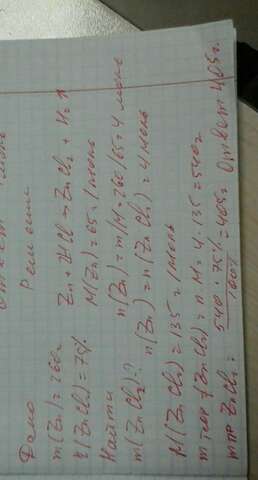 Решение
Дано
m(Zn)=260г
η(ZnCl₂)=75%
Найти
m(ZnCl₂)?
Zn + 2HCl = ZnCl₂ + H₂↑
M(Zn)=65г/моль
n(Zn)=m/M=260/65=4 моль
n(Zn)=n(ZnCl₂)=4 моль
M(ZnCl₂)=135г/моль
m теор (ZnCl₂)=n·M=4·135=540г
m пр ZnCl₂ = 540·75%/100% =405г Ответ 405г.